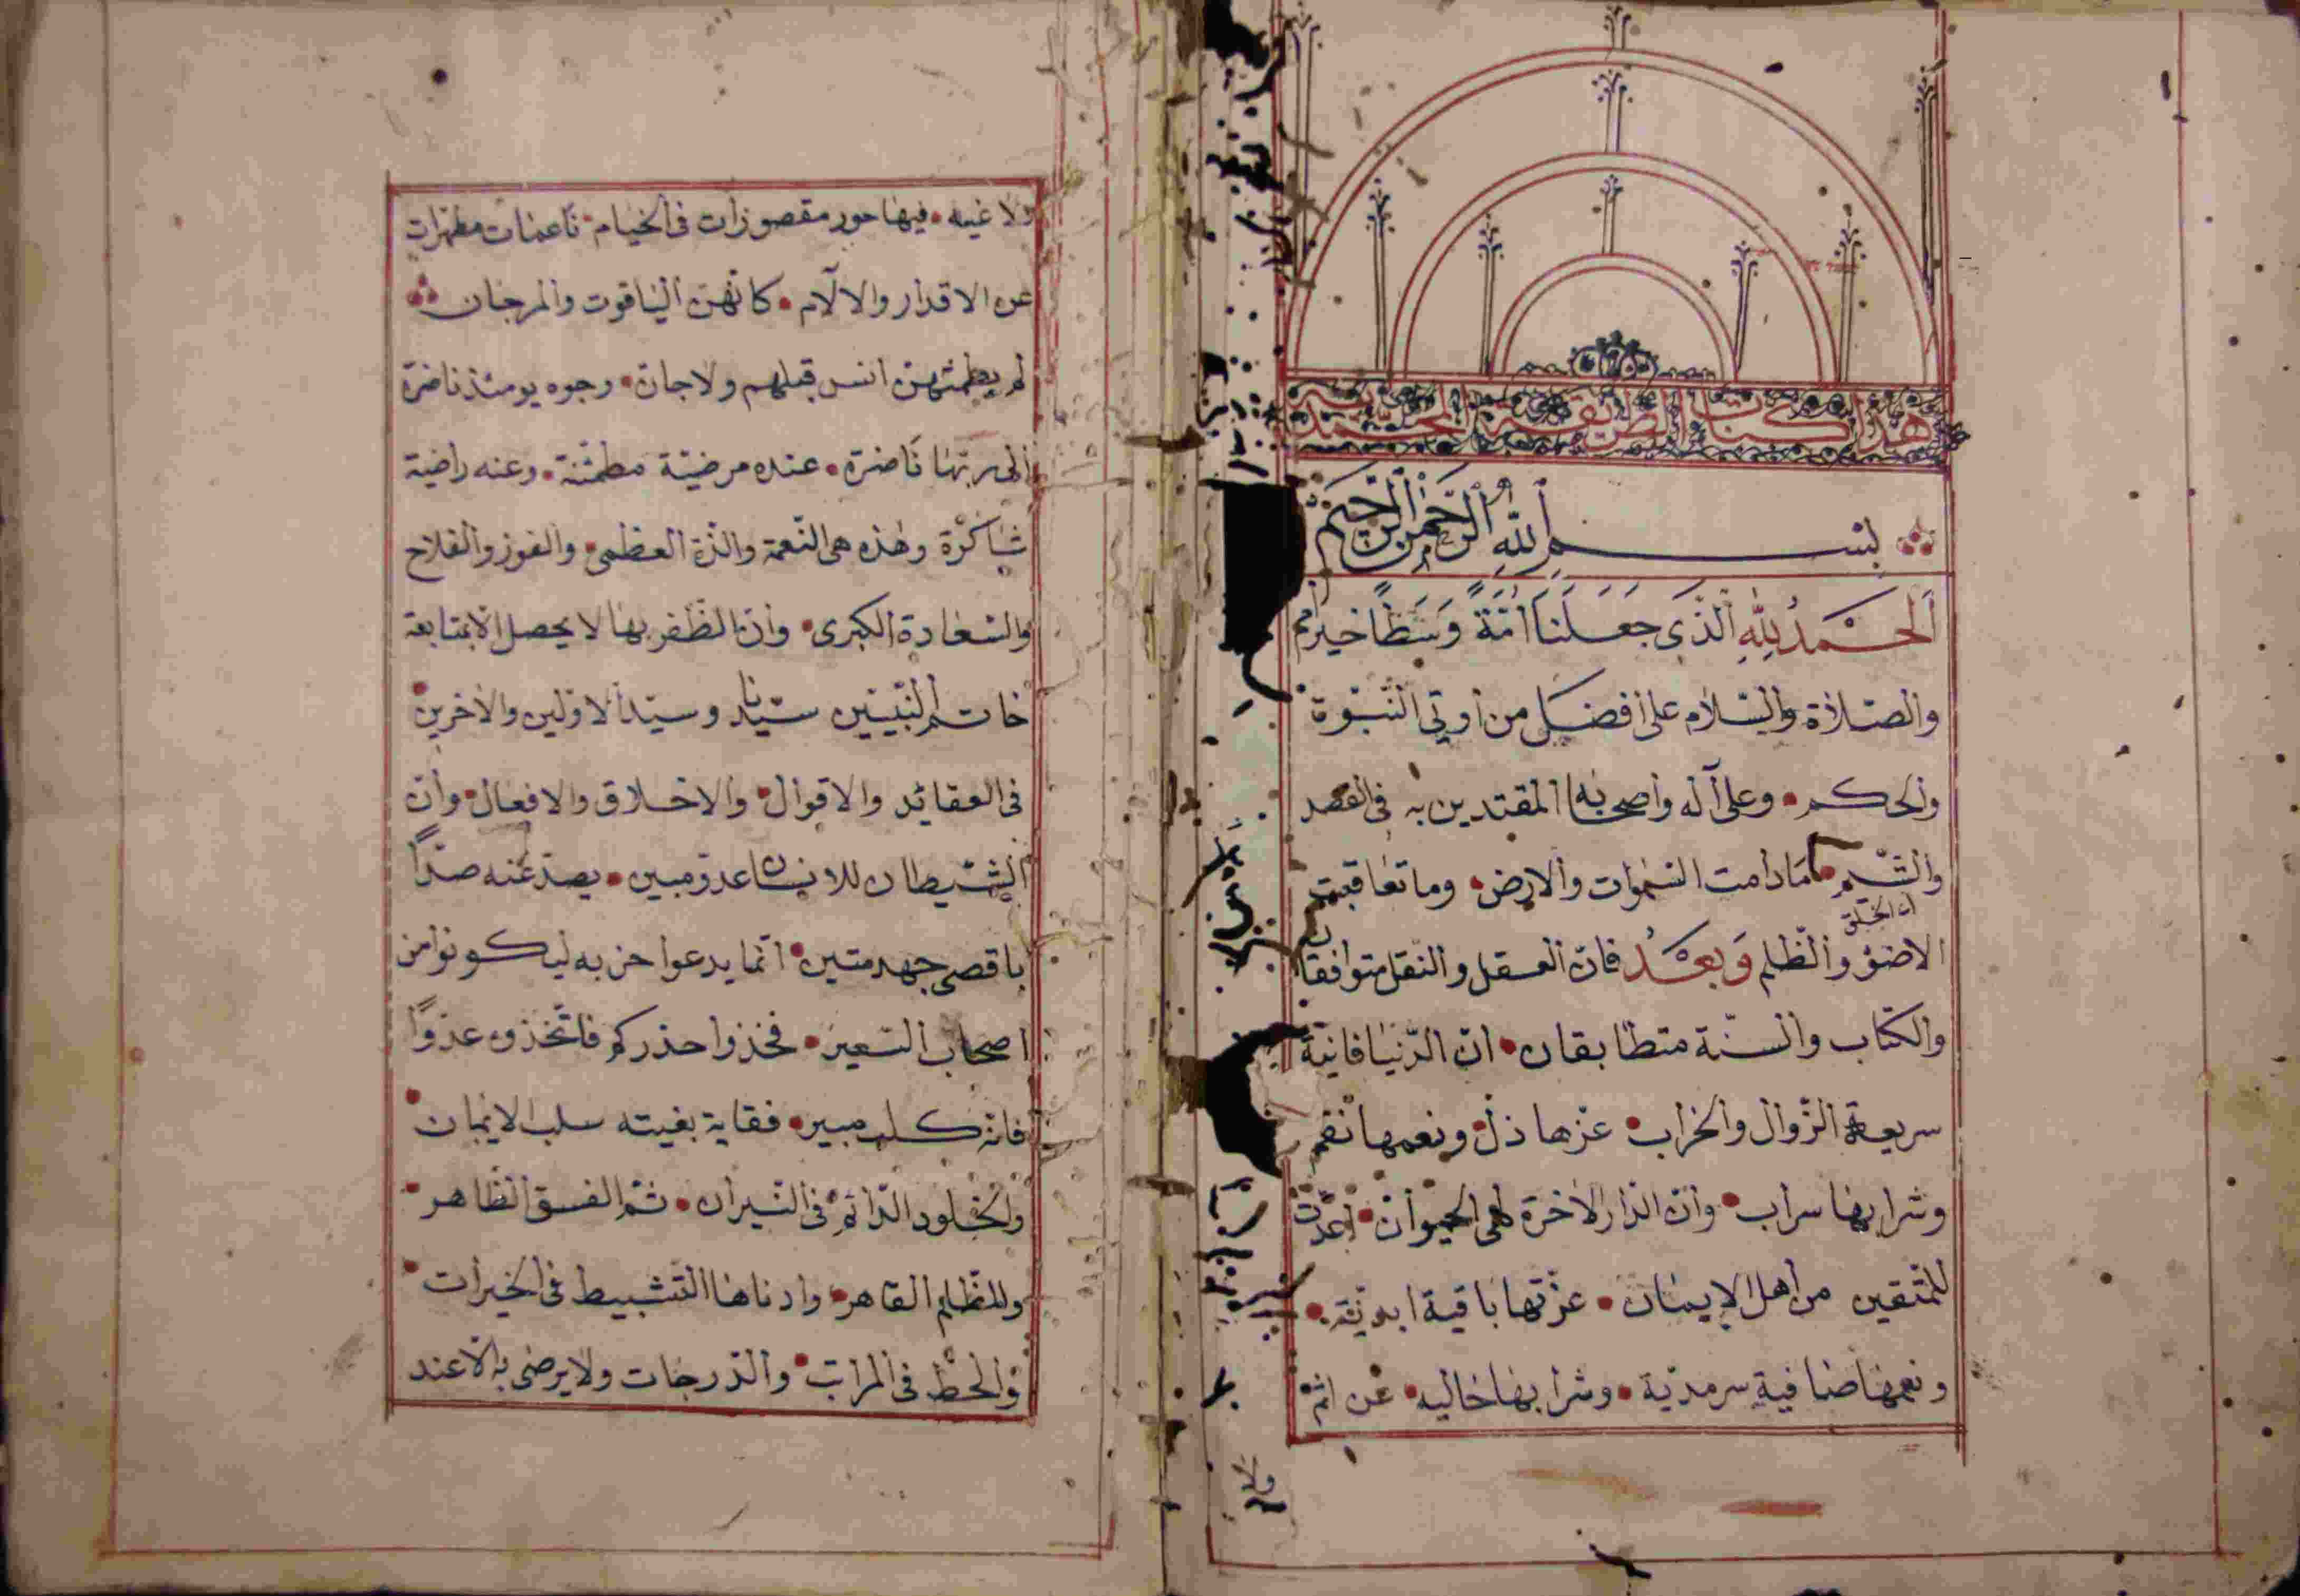 هذا كتاب الطريقة المحمدية
بسم الله الرحمن الرحيم
اَلْحَمْدُ لِلّٰهِ الَّذي جَعَلَنَا اُمَّةً وَسَطًا خير امم
والصّلاة والسّلام على أفضل من أوتي النّبوّة
والحكم • وعلى آله وأصحابه المقتدين به في القصد
والشّيم • مَا دامت السّموات والارض • وما تعاقبت
الاضوء والظّلم وَبَعْدُ فانّ العقل والنّقل متوافقان
والكتاب والسنّة متطابقان • انّ الدّنيا فانية
سريعة الزّوال والخراب • عزّها ذلّ ونعمها نقم
وشرابها سراب • وانّ الدّار الآخرة لهي الحيوان • اعدّت
للمتّقين من أهل الإيمان • عزّتها باقية ابديّة •
ونعمها صافية سرمديّة • وشرابها خاليه • عن اثم
ولا
ولا غيه • فيها حور مقصورات في الخيام • ناعمات مطهرات
عن الاقدار والالآم • كانّهنّ الياقوت والمرجان
لم يطمثهنّ انس قبلهم ولا جانّ • وجوه يومئذ ناضرة
الى ربّها ناضرة • عنده مرضيّة مطمئنّة • وعنه راضية
شاكرة وهذه هي النّعمة والذّة العظمى • والفوز والفلاح
والسّعادة الكبرى • وانّ الظّفر بها لا يحصل الّا بمتابعة
خاتم النّبيّين سيّدنا وسيّد الاوّلين والآخرين •
في العقائد والاقوال • والاخلاق والافعال • وأنّ
الشّيطان للانسان عدوّ مبين • يصدّ عنه صدّاً
باقصى جهد متين • انّما يدعوا حزبه ليكونوا من
اصحاب السّعير • فخذوا حذركم فاتّخذوه عدوّاً
فانّه كلب مبير • فغاية بغيته سلب الايمان •
والخلود الدّائم في النّيران • ثمّ الفسق الظّاهر •
والظّلم القاهر • وادناها التّثبيط في الخيرات •
والحطّ في المراتب • والدّرجات ولا يرضى به الّا عند